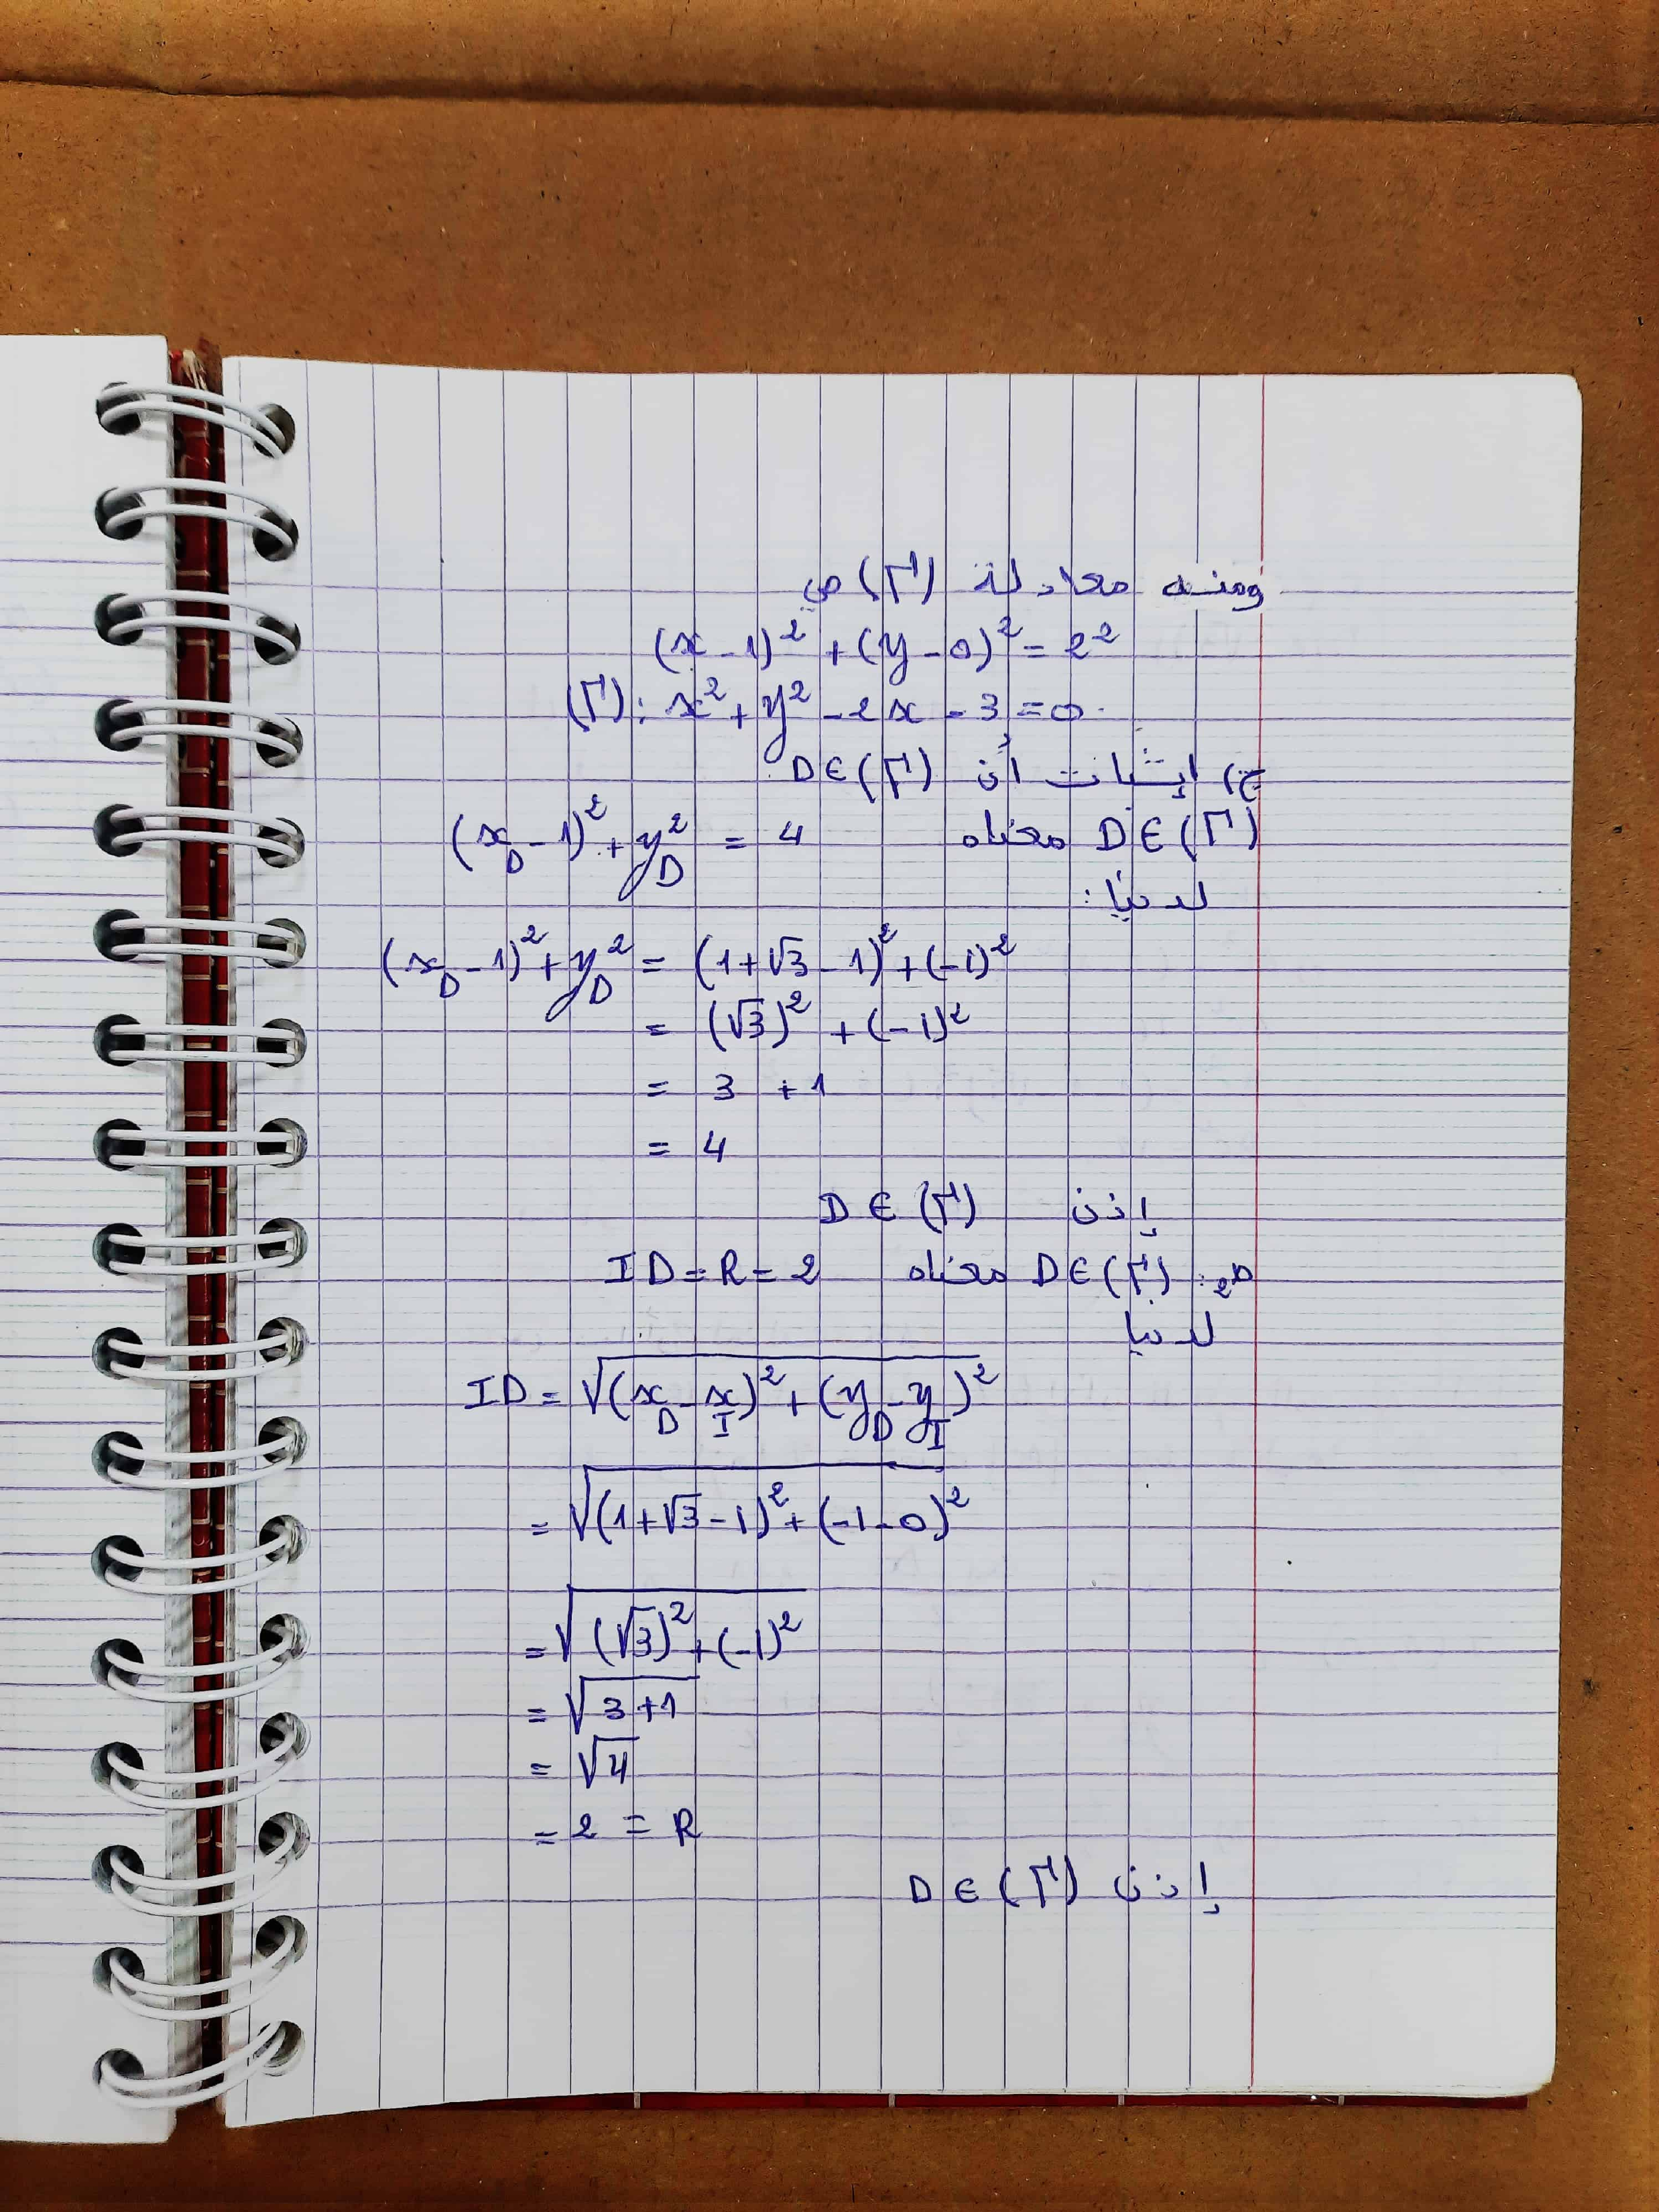 ومنه معادلة (Γ) هي
(x-1)² + (y-0)² = 2²
(Γ): x² + y² - 2x - 3 = 0.
ج) إثبات أن D∈(Γ)
D∈(Γ) معناه (x_D - 1)² + y_D² = 4
لدينا:
(x_D - 1)² + y_D² = (1+√3 - 1)² + (-1)²
= (√3)² + (-1)²
= 3 + 1
= 4
إذن D ∈ (Γ)
ط2: D∈(Γ) معناه ID = R = 2
لدينا
ID = √((x_D - x_I)² + (y_D - y_I)²)
= √((1+√3-1)² + (-1-0)²)
= √((√3)² + (-1)²)
= √(3+1)
= √4
= 2 = R
إذن D ∈ (Γ)